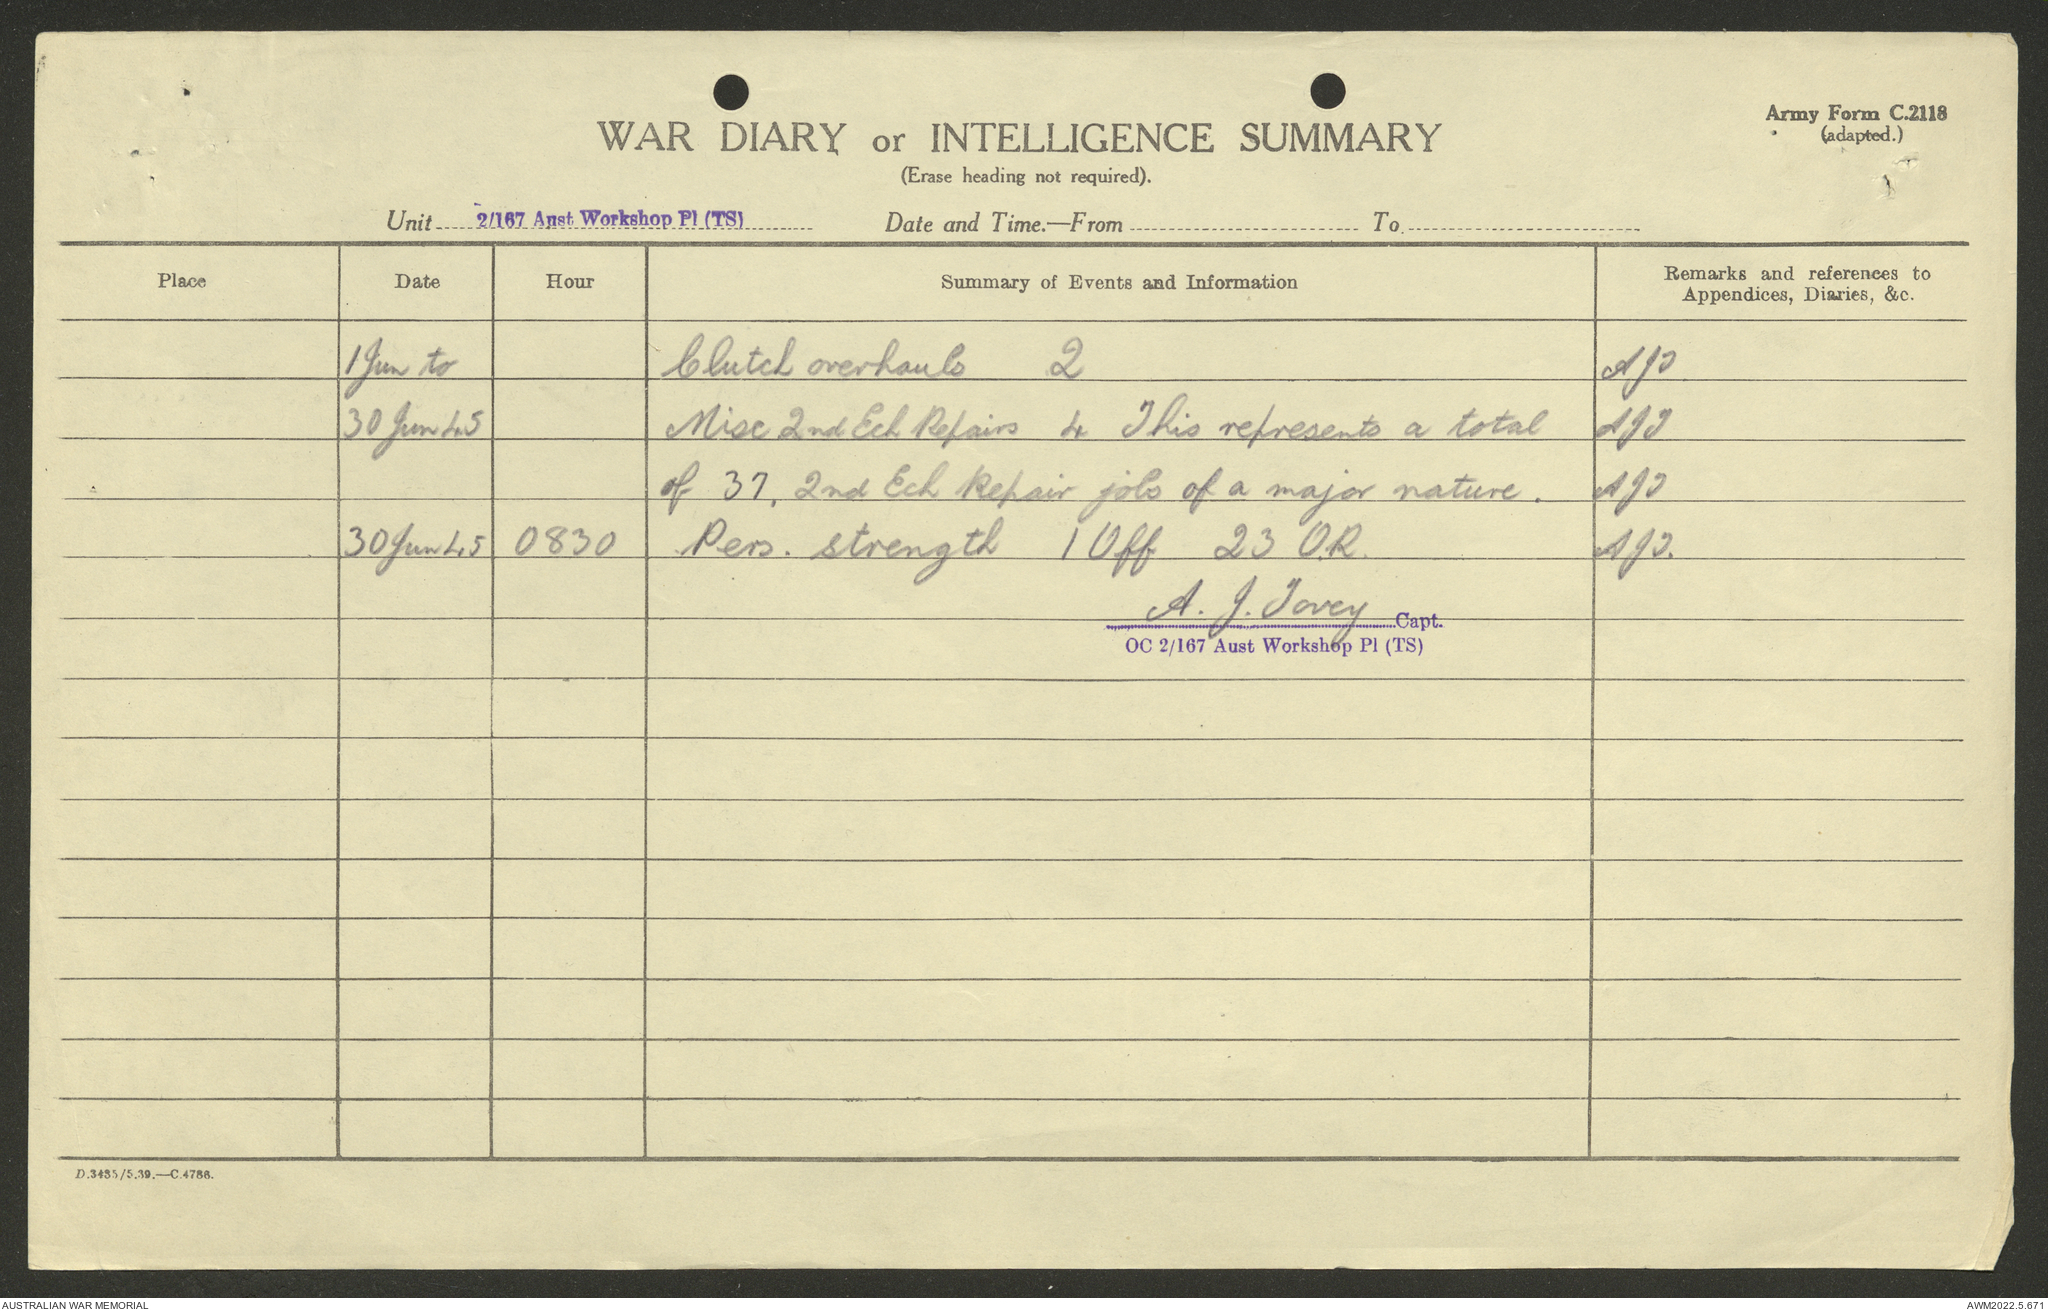 Army Form C.2118
(adapted.)
WAR DIARY or INTELLIGENCE SUMMARY
(Erase heading not required).
Unit 2/167 Aust Workshop Pl (TS) Date and Time.—From To
Place Date Hour Summary of Events and Information Remarks and references to
Appendices, Diaries, &c.
1 Jun to Clutch overhauls 2 AJT
30 Jun 45 Misc 2nd Ech Repairs 4 This represents a total AJT
of 37, 2nd Ech Repair jobs of a major nature. AJT
30 Jun 45 0830 Pers. strength 1 Off 23 O.R. AJT.
A. J. Tovey Capt.
OC 2/167 Aust Workshop Pl (TS)
D.3435/5.39.—C.4786.
AUSTRALIAN WAR MEMORIAL AWM2022.5.671